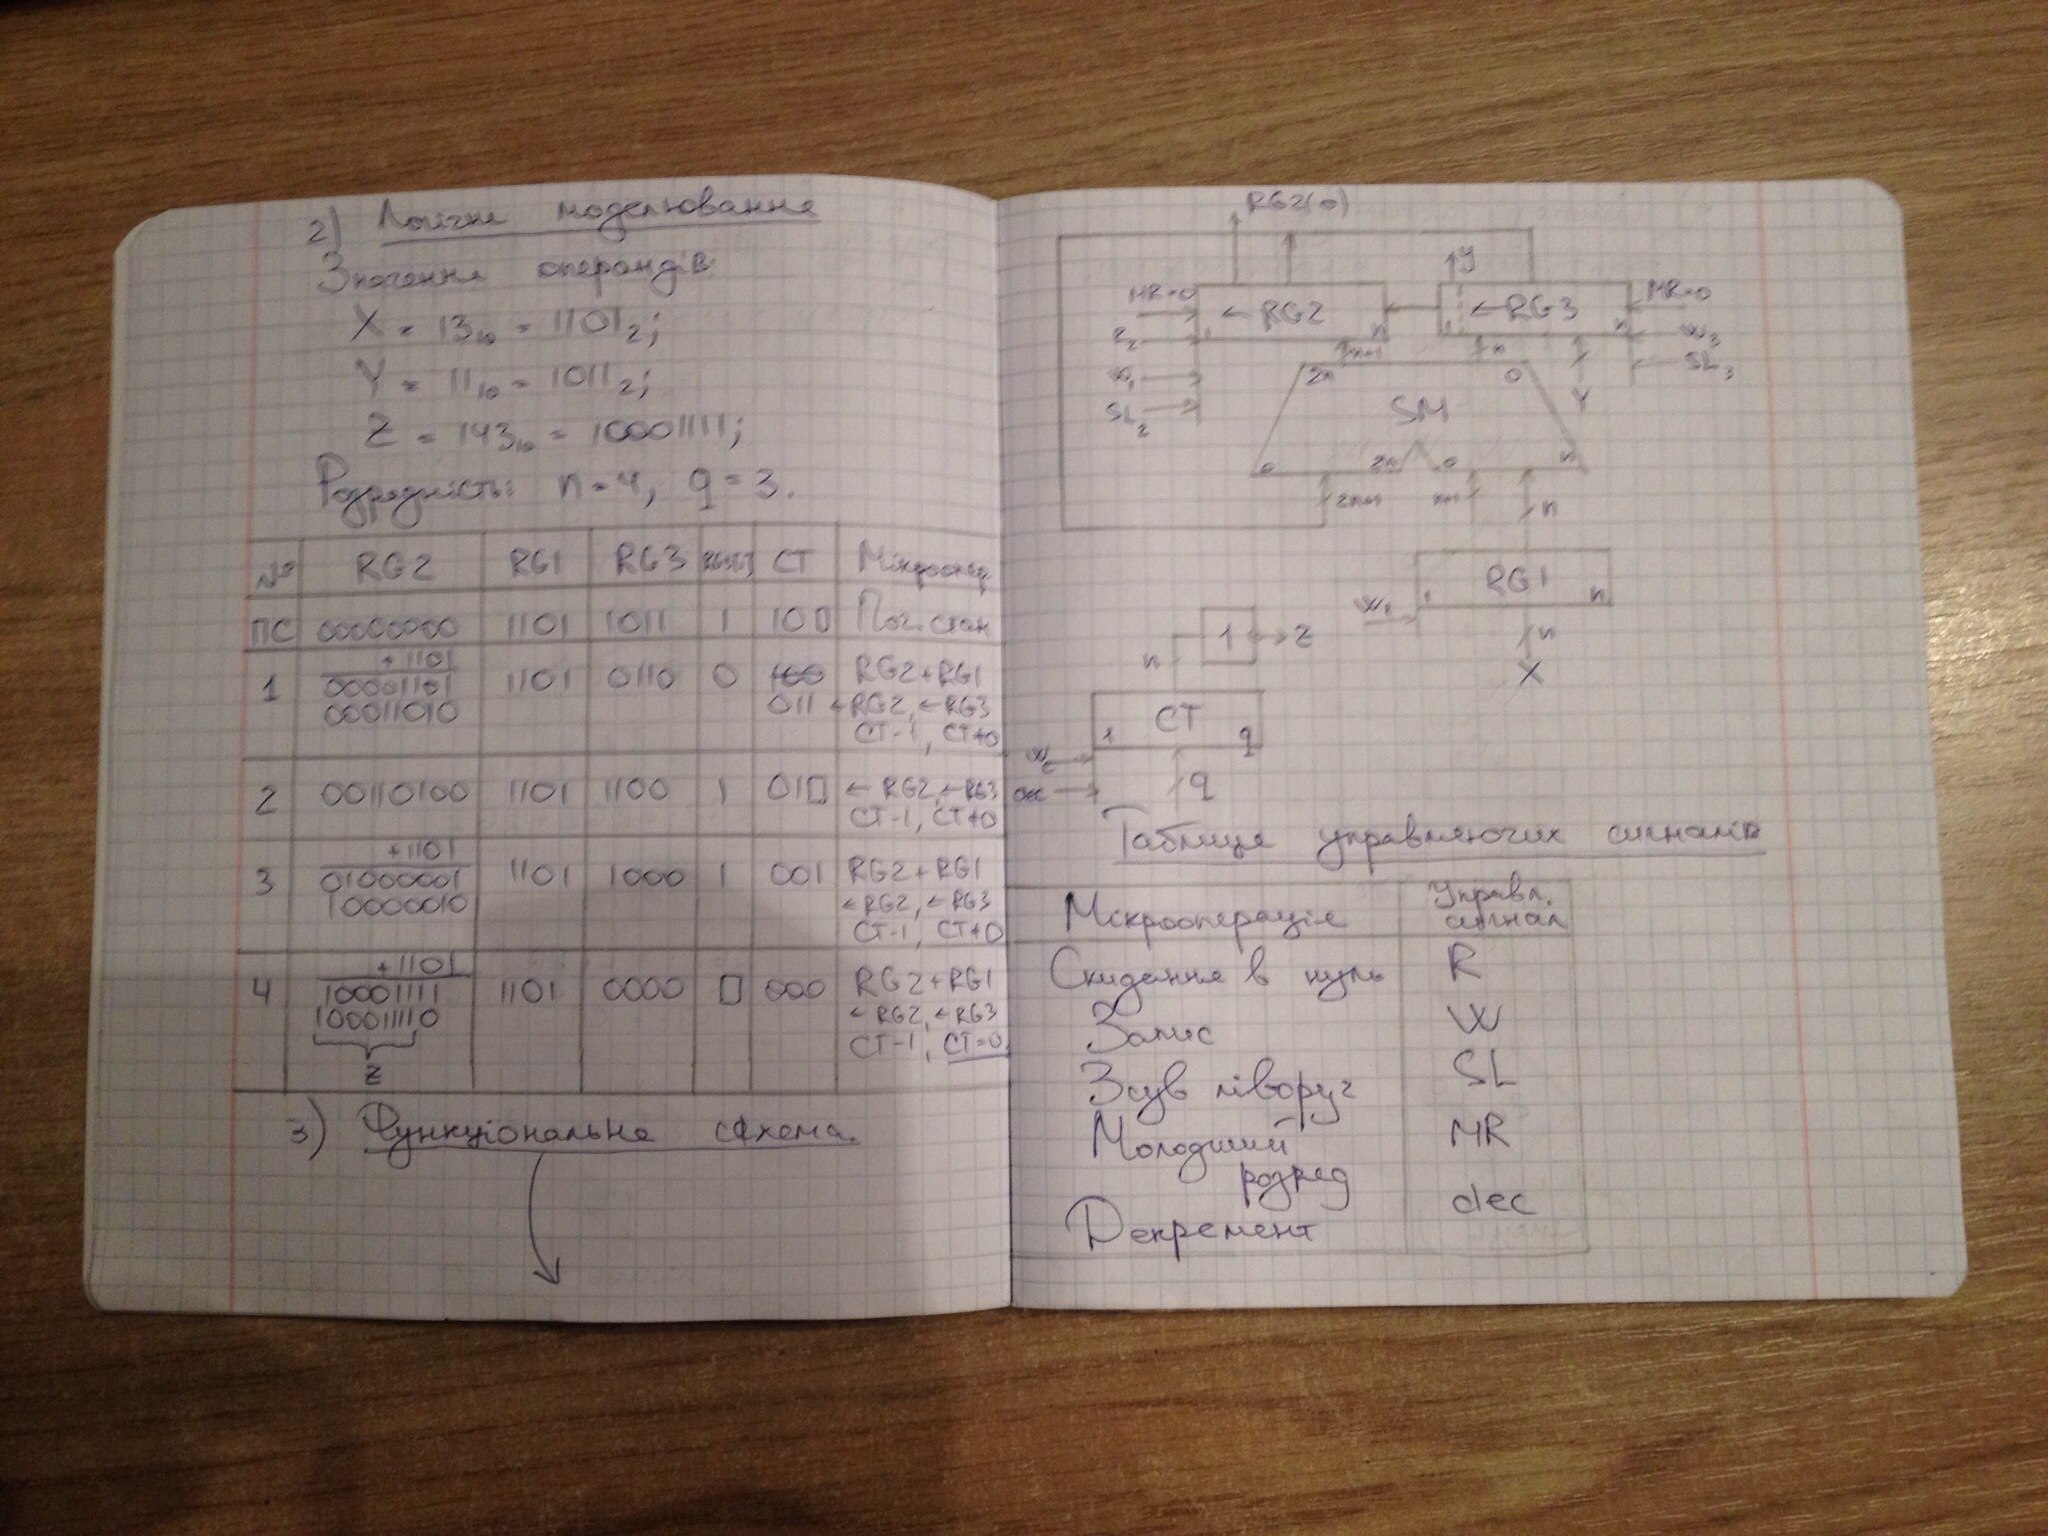 2) Логічне моделювання
Значення операндів
X = 13₁₀ = 1101₂;
Y = 11₁₀ = 1011₂;
Z = 143₁₀ = 10001111;
n = 4, q = 3.
№ RG2 RG1 RG3 CT Мікроопер.
ПС 00000000 1101 1011 1 100 Поч. стан
+1101
1 00001101 1101 0110 0 100 RG2+RG1
00011010 011 ←RG2, ←RG3
CT-1, CT≠0
2 00110100 1101 1100 1 010 ←RG2, ←RG3
CT-1, CT≠0
+1101
3 01000001 1101 1000 1 001 RG2+RG1
10000010 ←RG2, ←RG3
CT-1, CT≠0
+1101
4 10001111 1101 0000 0 000 RG2+RG1
100011110 ←RG2, ←RG3
CT-1, CT=0
Z
3) Функціональна схема.
RG2(0)
Y
MR=0 ←RG2 ←RG3 MR=0
1 n 1 n
R₂ W₃
n+1 n
SL₃
2n 0
W₁
SM Y
SL₂
0 2n 0 n
2n+1 n+1 n
RG1
1 n
1 Z
n n
X
CT
1 q
dec q
Таблиця управляючих сигналів
Мікрооперація Управл. сигнал
Скидання в нуль R
Запис W
Зсув ліворуч SL
Молодший розряд MR
Декремент dec